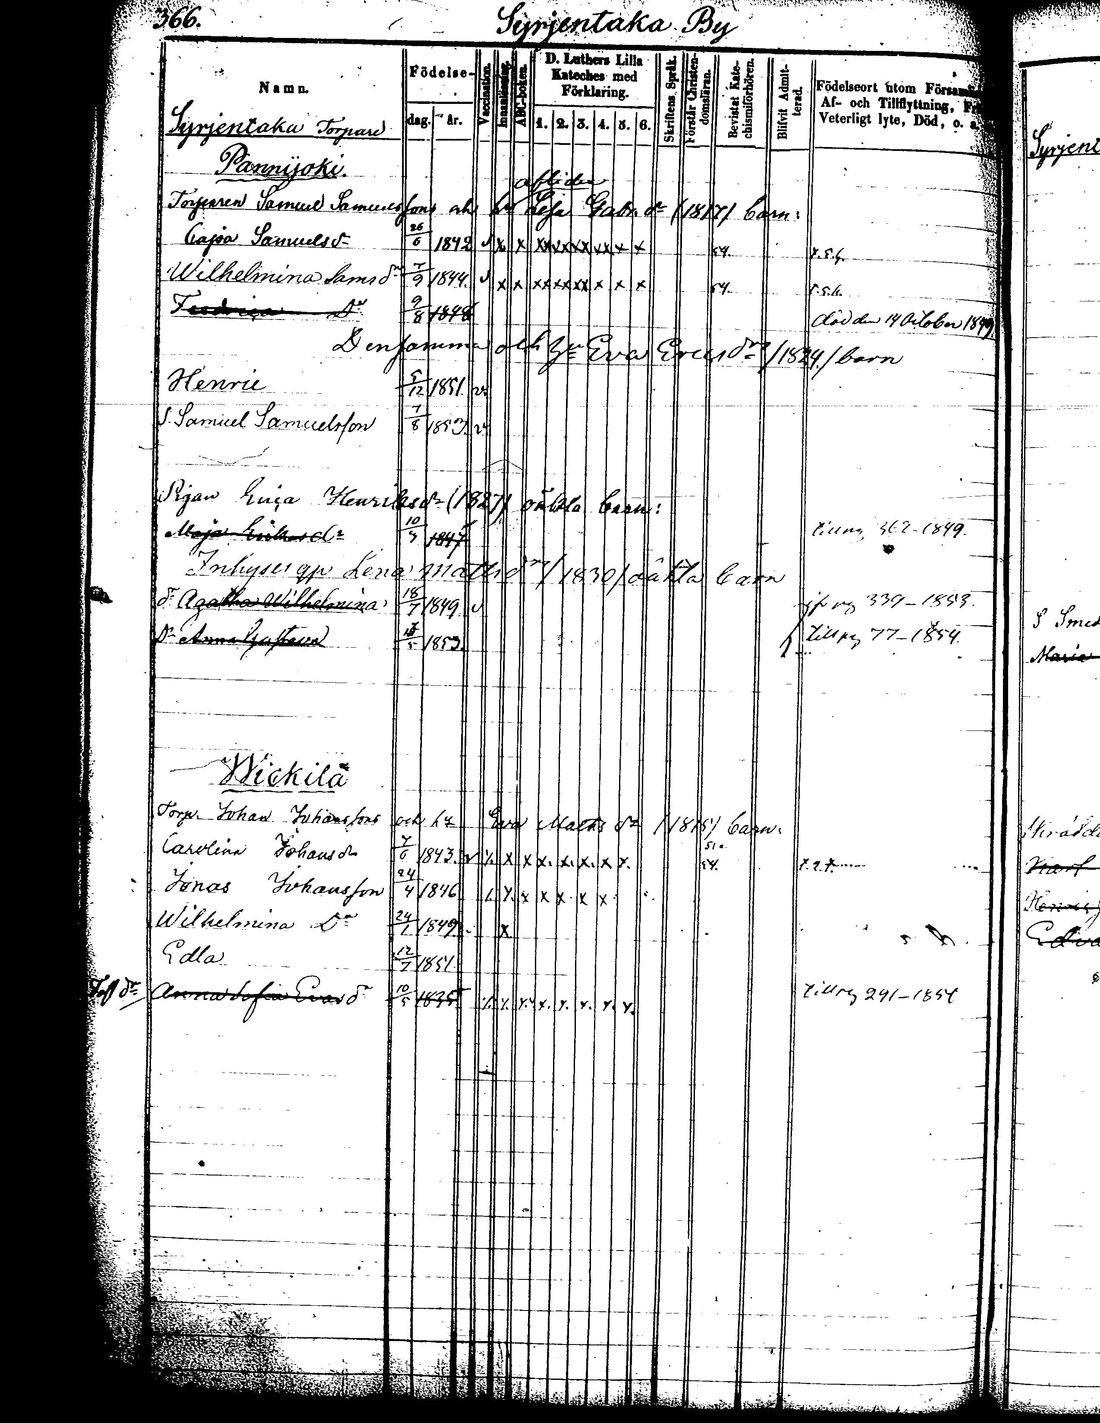 366.
Syrjentaka By
Namn.
Födelse-
dag. år.
Vaccination.
Innanläsning.
ABC-boken.
D. Luthers Lilla Kateches med Förklaring.
1. 2. 3. 4. 5. 6.
Skriftens Språk.
Förstår Christendomsläran.
Bevistat Katechismiförhören.
Blifvit Admitterad.
Födelseort utom Församl
Af- och Tillflyttning, Fr
Veterligt lyte, Död, o. a.
Syrjentaka Torpare
Pannijoki.
afliden
Torparen Samuel Samuelssons och hu Lisa Gabr. dr (1817) barn:
Cajsa Samuelsdr 26/6 1842 v x x xx xx xx xx x x 54.
Wilhelmina Sams dr 7/9 1844. v x x xx xx xx x x x 54.
Fredrica Dr 9/8 1848 död den 14 October 1849
Densamma och hu Eva Ericsdr /1824/ barn
Henric 5/12 1851. v.
S. Samuel Samuelsson 7/8 1853. v.
Pigan Henriksdr (1827) oäkta barn:
Maja Eriksdr 10/3 1847 till pag 362-1849.
Inhyses qp Lena Mattsdr /1830/ oäkta barn
dr Agatha Wilhelmina 18/7 1849 v pag 339-1853.
dr Anna Gustava 1853. till pag 77-1854.
Wickilä
Torp. Johan Johanssons och hu Eva Matts dr (1815) barn:
Carolina Johansdr 7/6 1843. v x x x x. x. x. x x. 54.
Jonas Johansson 24/4 1846 x x x x x x
Wilhelmina Dr 24/1 1849 x
Edla 12/7 1851
dr Anna Sofia Evasdr 10/5 1835 x. x. x x. x. x. x. x. till pag 291-1854
Syrjent
S Smed
Maria
Skrädda
Karl
Henric
Edva